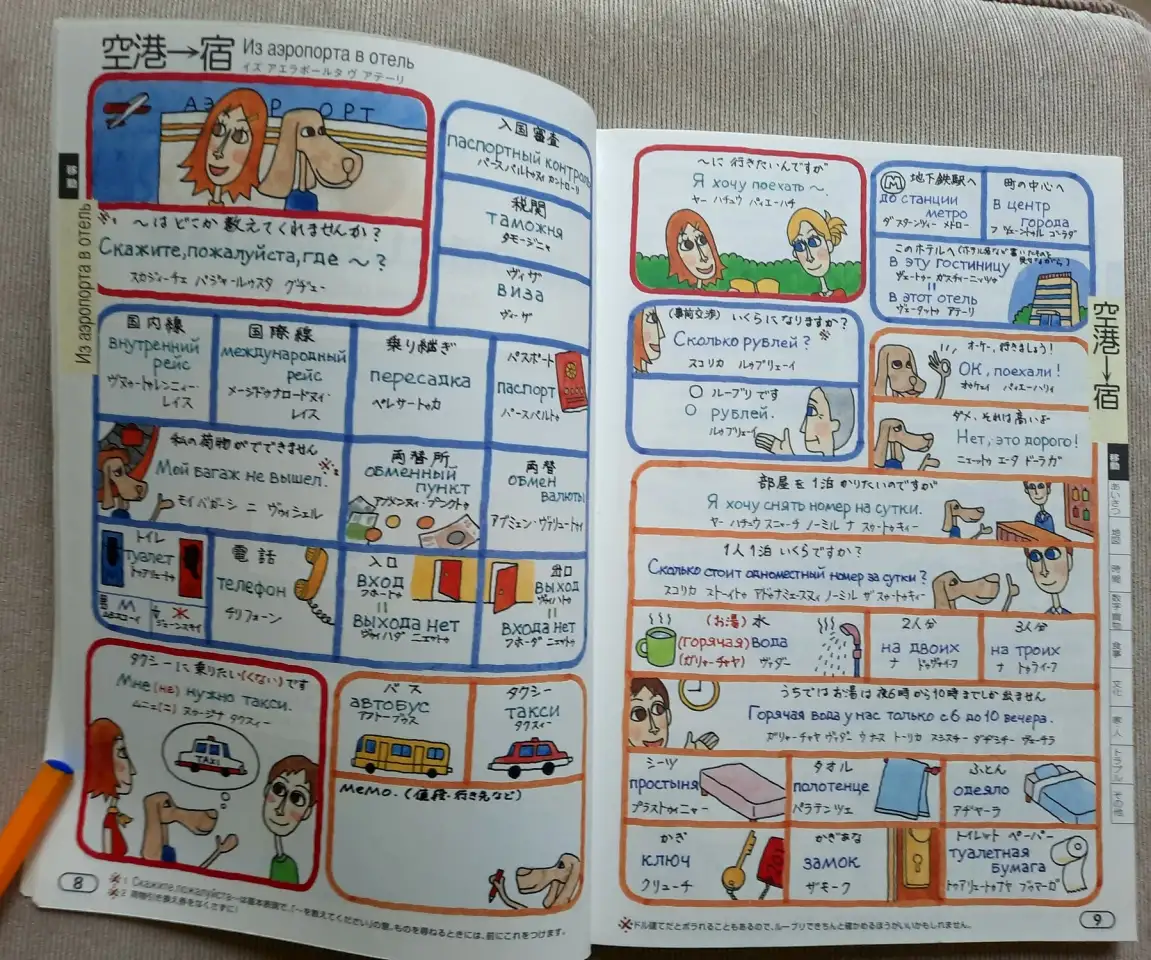 空港→宿 Из аэропорта в отель
イズ アエラポールタ ヴ アテーリ
АЭ Р ОРТ
移動
Из аэропорта в отель
※1 〜はどこか教えてくれませんか?
Скажите,пожалуйста,где 〜?
スカジーチェ パジャールゥスタ グヂェー
入国審査
паспортный контроль
パースパルトゥヌィ カントローリ
税関
таможня
タモージニャ
ヴィザ
виза
ヴィーザ
国内線
внутренний
рейс
ヴヌゥトゥレンニィー・
レイス
国際線
международный
рейс
メージドゥナロードヌィ・
レイス
乗り継ぎ
пересадка
ペレサートゥカ
パスポート
паспорт
パースパルト
私の荷物がでてきません
Мой багаж не вышел. ※2
モイ バガーシ ニ ヴゥィシェル
両替所
обменный
пункт
アブメンヌィ・プンクトゥ
両替
обмен
валюты
アブミェン・ヴァリュートゥイ
トイレ
туалет
トゥアリェートゥ
男 М
女 Ж
電話
телефон
チリフォーン
入口
вход
フホートゥ
=
выхода нет
ヴゥィハダ ニェットゥ
出口
выход
ヴゥィハトゥ
=
входа нет
フホーダ ニェットゥ
タクシーに乗りたい(くない)です
Мне (не) нужно такси.
ムニェ(ニ) ヌゥージナ タクスィー
TAXI
バス
автобус
アフトーブゥス
タクシー
такси
タクスィー
TAXI
мемо.(値段・行き先など)
8
※1 Скажите,пожалуйста〜は基本表現で、「〜を教えてください」の意。ものを尋ねるときには、前にこれをつけます。
※2 荷物引き換え券をなくさずに!
〜に行きたいんですが
Я хочу поехать 〜.
ヤー ハチュウ パイェーハチ
M 地下鉄駅へ
до станции
метро
ダ スターンツィー メトロー
町の中心へ
в центр
города
フ ツェーントゥル ゴーラダ
このホテルへ(ホテル名など書いたものを見せながら)
в эту гостиницу
ヴェートゥー ガスチーニッツゥ
=
в этот отель
ヴェータットゥ アテーリ
(事前交渉) いくらになりますか?
Сколько рублей? ※
スコリカ ルゥブリェーイ
○ ルーブリです
○ рублей.
ルゥブリェーイ
オーケー、行きましょう!
ОК, поехали!
オゥケェイ パイェーハリィ
ダメ、それは高いよ
Нет, это дорого!
ニェットゥ エータ ドーラガ
部屋を1泊かりたいのですが
Я хочу снять номер на сутки.
ヤー ハチュウ スニャーチ ノーミル ナ スゥートゥキィー
1人1泊いくらですか?
Сколько стоит одноместный номер за сутки?
スコリカ ストーイトゥ アドゥナミェースヌィ ノーミル ザ スゥートゥキィー
(お湯) 水
(горячая) вода
(ガリャーチャヤ) ヴァダー
2人分
на двоих
ナ ドゥヴァイーフ
3人分
на троих
ナ トゥライーフ
うちではお湯は夜6時から10時までしか出ません
Горячая вода у нас только с 6 до 10 вечера.
ガリャーチャヤ ヴァダー ウ ナス トーリカ スシスチー ダヂェシチー ヴェーチラ
シーツ
простыня
プラストゥイニャー
タオル
полотенце
パラテンツェ
ふとん
одеяло
アヂヤーラ
かぎ
ключ
クリューチ
かぎあな
замок
ザモーク
トイレット ペーパー
туалетная
бумага
トゥアリェートゥナヤ ブゥマーガ
空港→宿
移動
あいさつ
地図
時間
数字 買物
食事
文化
家・人
トラブル
その他
※ドル建てだとボラれることもあるので、ルーブリできちんと確かめるほうがいいかもしれません。
9